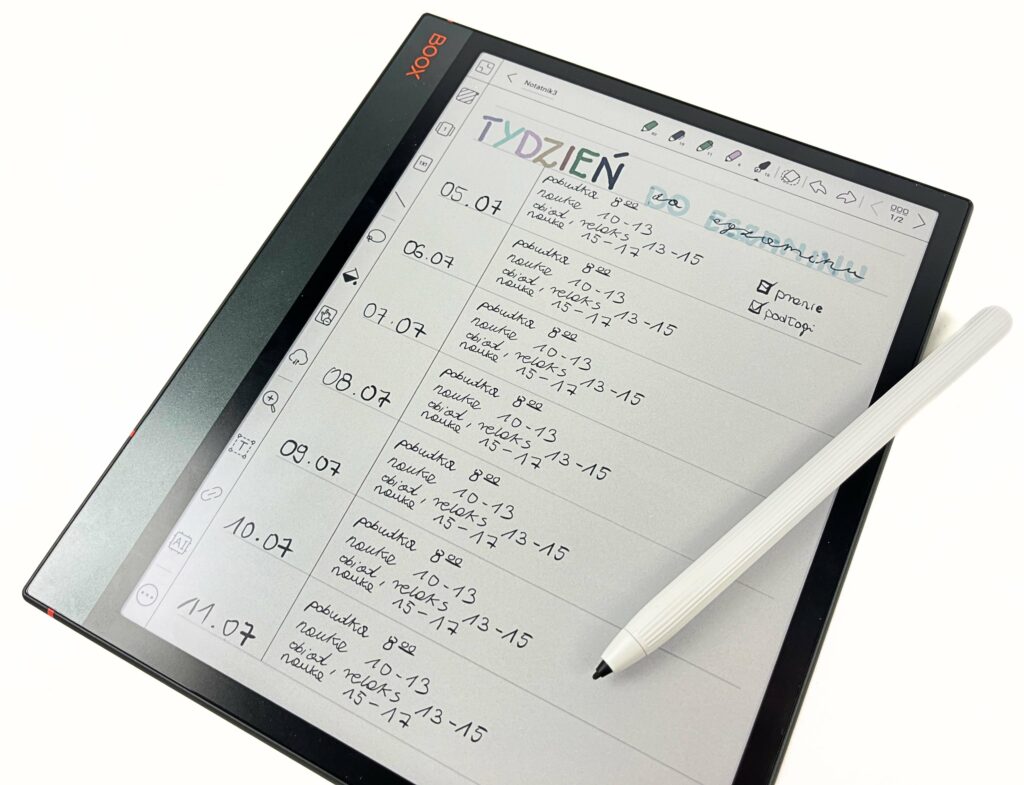 BOOX
Notatnik3
1/2
TYDZIEŃ DO EGZAMINU
do egzaminu
05.07
pobudka 8:00
nauka 10-13
obiad, relaks 13-15
nauka 15-17
pranie
podłogi
06.07
pobudka 8:00
nauka 10-13
obiad, relaks 13-15
nauka 15-17
07.07
pobudka 8:00
nauka 10-13
obiad, relaks 13-15
nauka 15-17
08.07
pobudka 8:00
nauka 10-13
obiad, relaks 13-15
nauka 15-17
09.07
pobudka 8:00
nauka 10-13
obiad, relaks 13-15
nauka 15-17
10.07
pobudka 8:00
nauka 10-13
obiad, relaks 13-15
nauka 15-17
11.07
pobudka 8:00
nauka 10-13
obiad, relaks 13-15
nauka 15-17
AI
T